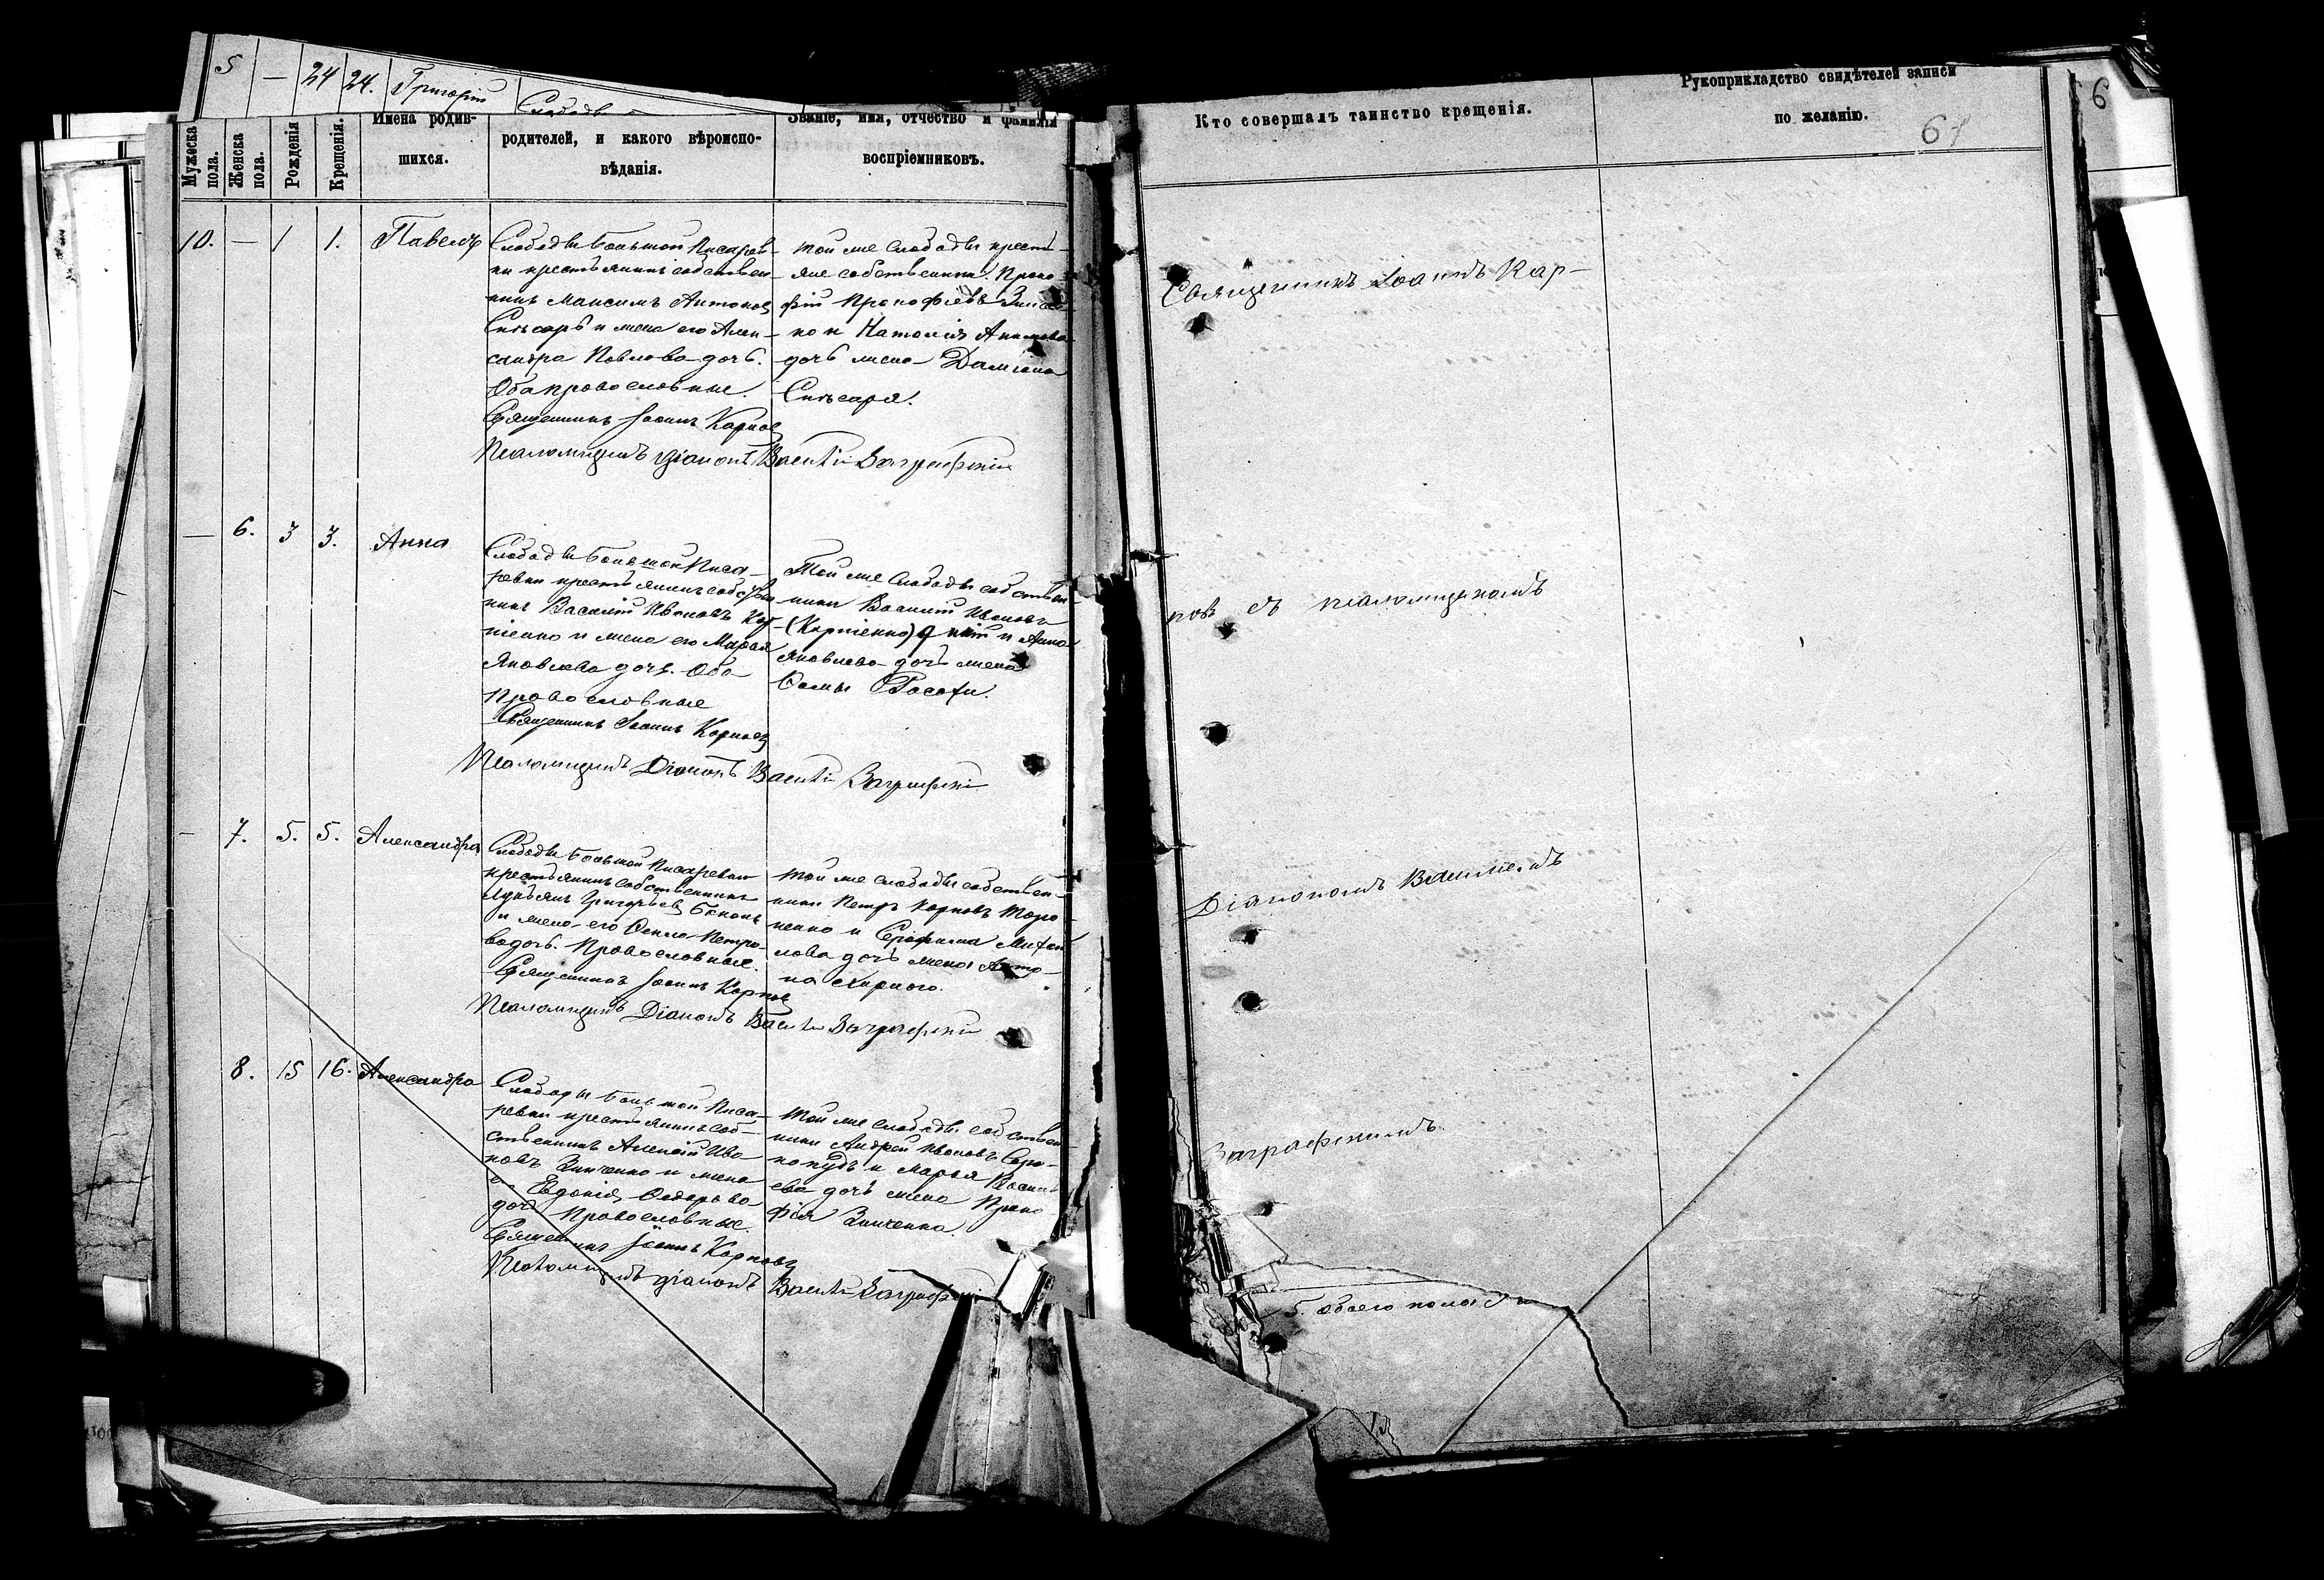 5 — 24 24. Григорій
Слободы
Мужеска пола.
Женска пола.
Рожденія
Крещенія.
Имена родив-
шихся.
родителей, и какого вѣроиспо-
вѣданія.
Званіе, имя, отчество и фамилія
воспріемниковъ.
10. — 1 1. Павелъ
Слободы Большой Писарев-
ки крестьянинъ собствен
никъ Максимъ Антоновъ
Слѣсарь и жена его Алек-
сандра Павлова дочь.
Оба православные.
Священникъ Іоаннъ Карповъ
Псаломщикъ Діаконъ Василій Заграфскій
той же слободы кресть-
яне собственники. Проко
фій Прокофіевъ
ко и Наталія Акимова
дочь жена Даміана
Слѣсаря.
— 6. 3 3. Анна
Слободы Большой Писа-
ревки крестьянинъ собствен
никъ Василій Ивановъ Кор-
ніенко и жена его Марѳа
Яковлева дочь. Оба
православные
Священникъ Іоаннъ Карповъ
Псаломщикъ Діаконъ Василій Заграфскій
Той же слободы собствен-
ники Василій Ивановъ
(Корніенко) и Анна
Яковлева дочь жена
Ѳомы
- 7. 5. 5. Александра
Слободы Большой Писаревки
крестьянинъ собственникъ
Лукьянъ Григорьевъ
и жена его Ѳекла Петро-
ва дочь. Православные.
Священникъ Іоаннъ Карповъ
Псаломщикъ Діаконъ Василій Заграфскій
той же слободы собствен-
ники Петръ Карповъ Торо-
ненко и Серафима Михай
лова дочь жена Анто-
на
8. 15 16. Александра
Слободы Большой Писа-
ревки крестьянинъ соб-
ственникъ Алексій Ива-
новъ Зинченко и жена
его Евдокія Ѳедорова
дочь Православные.
Священникъ Іоаннъ Карповъ
Псаломщикъ діаконъ Василій Заграфскій
той же слободы собствен-
ники Андрей Ивановъ
и Марья Василь
ева дочь жена Проко
фія Зинченка.
Кто совершалъ таинство крещенія.
Рукоприкладство свидѣтелей записи
по желанію.
61
6
Священникъ Іоаннъ Кар-
повъ съ псаломщикомъ
Діакономъ Василіемъ
Заграфскимъ
обоего пола